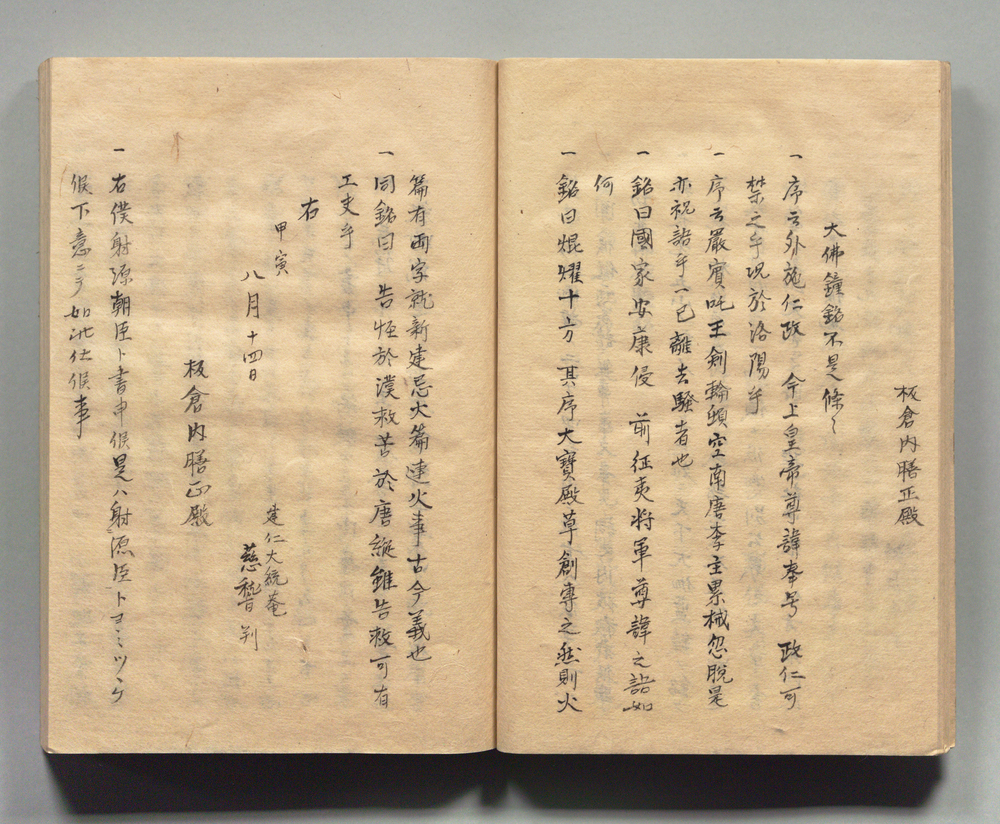 板倉内膳正殿
大佛鐘銘不是條〻
一 序云外施仁政 今上皇帝尊諱奉号 政仁可
禁之乎况於洛陽乎
一 序云嚴賓吒王劍輪頓空南唐李主累械忽脱是
亦祝詣乎一已離去騒者也
一 銘曰國家安康侵 前征夷将軍尊諱之詣如
何
一 銘曰焜燿十方 其序大寶殿草創専之然則火
篇有両字就新建忌火篇連火事古今義也
一 同銘曰 告怪於漢救苦於唐縦雖告救可有
工夫乎
右
甲寅
八月十四日
建仁大統菴
慈稽 判
板倉内膳正殿
一 右僕射源朝臣ト書申候是ハ射源臣トヨミツヾケ
候下意ニテ如此仕候事